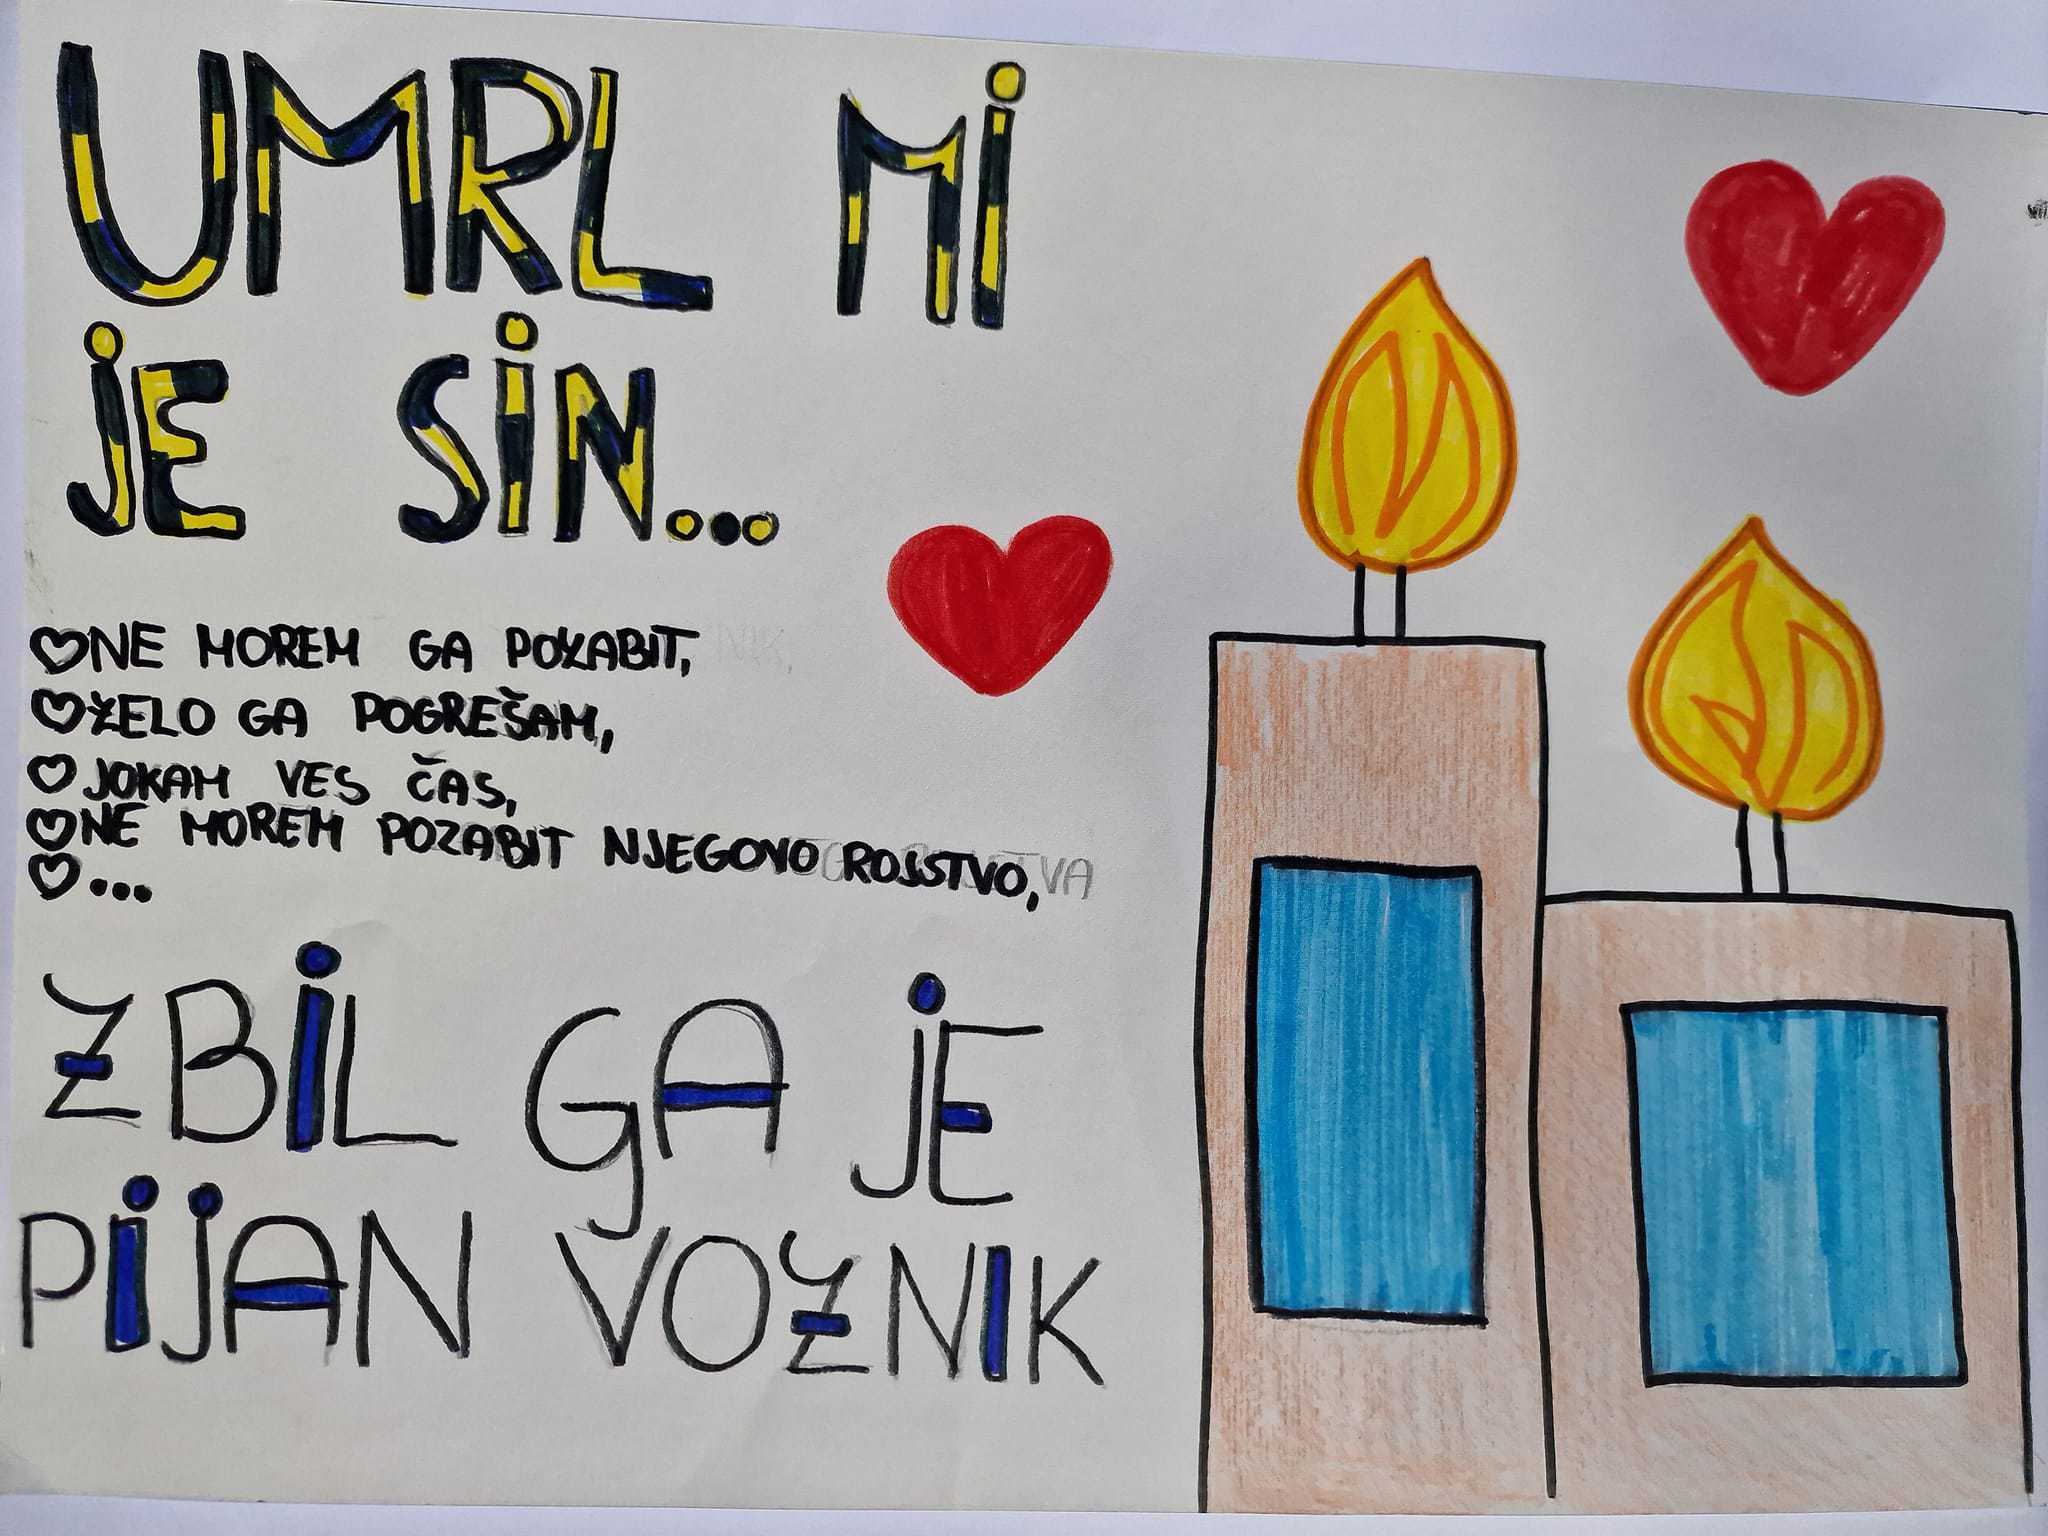 UMRL MI
JE SIN...
NE MOREM GA POZABIT,
ŽELO GA POGREŠAM,
JOKAM VES ČAS,
NE MOREM POZABIT NJEGOVO ROJSTVO,
...
ZBIL GA JE
PIJAN VOZNIK